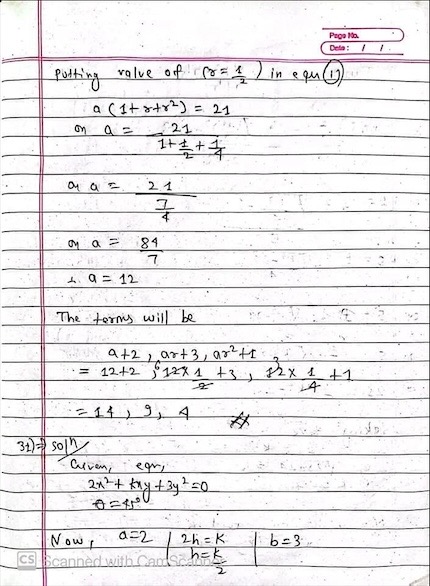 Page No.
Date: / /
putting value of (r = 1/2) in equ (1)
a (1+r+r²) = 21
or a = 21 / (1 + 1/2 + 1/4)
or a = 21 / (7/4)
or a = 84/7
∴ a = 12
The terms will be
a+2, ar+3, ar²+1
= 12+2, 12 × 1/2 + 3, 12 × 1/4 + 1
= 14, 9, 4
31) ⇒ solⁿ
Given, eqn,
2x² + kxy + 3y² = 0
θ = 45°
Now, a=2 | 2h = k | b=3
h = k/2
CS Scanned with CamScanner